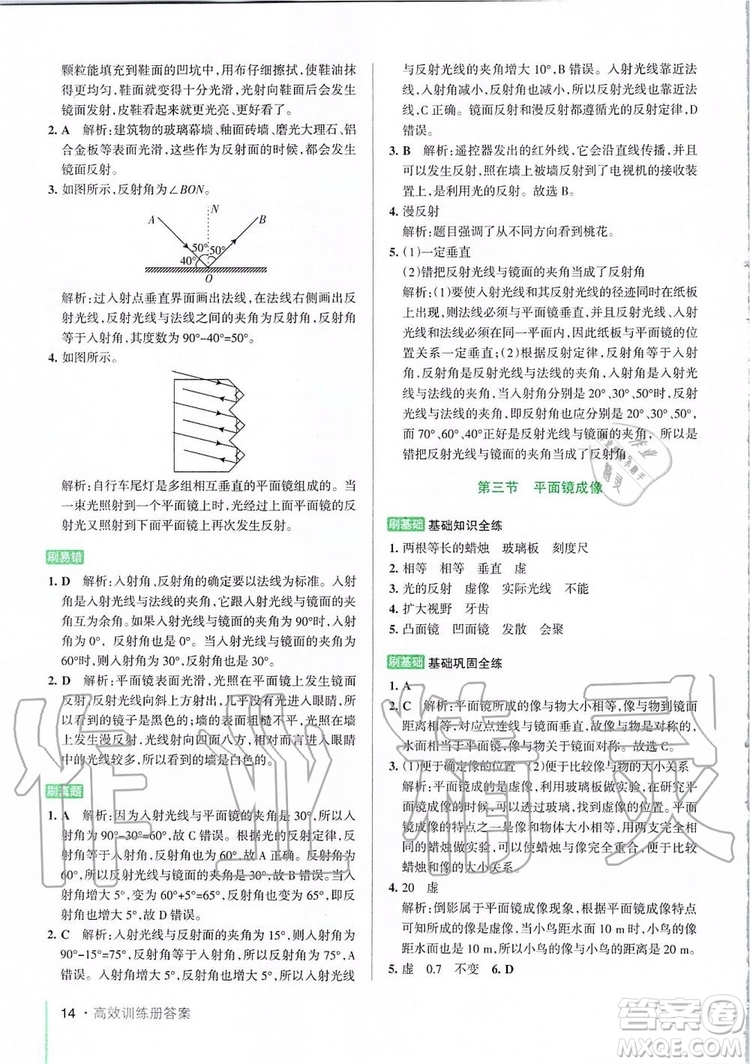 颗粒能填充到鞋面的凹坑中,用布仔细擦拭,鞋油抹
得更均匀,鞋面变得十分光滑,入射光线射向鞋面后会发生
镜面反射,皮鞋看起来更光亮、更好看了。
2. A 解析:建筑物的玻璃幕墙、釉面砖墙、磨光大理石、铝
合金板等表面光滑,这些作为反射面的时候,都会发生
镜面反射。
3. 如图所示,反射角为∠BON。
N
A B
50° 50°
40°
O
解析:过入射点垂直界面画出法线,在另一侧画出反
射光线,反射光线与法线之间的夹角为反射角,反射角
等于入射角,其度数为90°-40°=50°。
4. 如图所示。
解析:自行车尾灯是多组相互垂直的平面镜组成的。当
一束光照射到尾灯上时,先在一个平面镜上发生反射,
然后在下一面平面镜上再次发生反射。
刷易错
1. D 解析:入射角、反射角的确定要以法线为标准。入射
角是入射光线与法线的夹角,它跟入射光线与镜面的夹
角互为余角。如果入射光线与镜面的夹角为90°时,入
射角为0°,反射角也为0°。当入射光线与镜面的夹角为
30°时,入射角为60°,由光的反射定律可知,此时反射角
为60°。
2. D 解析:镜子表面光滑,光照射在平面镜上发生镜面
反射,反射光线斜向上方,几乎没有光进入人的眼睛,所
以看到的镜子是黑色的;墙的表面粗糙不平,光在墙
上发生漫反射,光线射向各个方向,有光进入人的眼睛
中,所以看到的墙是白色的。
刷真题
1. A 解析:因为入射光线与镜面的夹角是30°,所以入
射角为90°-30°=60°,故C错误。根据光的反射定律,反
射角等于入射角,入射角增大5°,反射角也增大5°,故A
正确。入射角增大5°,变为60°+5°=65°,故D错误。入
射角增大5°,反射光线与入射光线的夹角增大5°+5°=
10°,故B错误。
2. C 解析:入射光线与镜面的夹角为15°时,入射角为
90°-15°=75°,A错误。入射角减小5°时,入射光线
与反射光线的夹角增大10°,B错误。入射光线靠近法
线,入射角减小,反射角也减小,所以反射光线也靠近法
线,C正确。镜面反射和漫反射都遵循光的反射定律,D
错误。
3. B 解析:遥控器发出的红外线,它会沿直线传播,并且
可以发生反射,照在墙上被墙反射到了电视机的接收装
置上,利用光的反射。故选B。
4. 漫反射
解析:题目强调了从不同方向看到桃花。
5. (1)一定垂直
(2)错把反射光线与镜面的夹角当成了反射角
解析:(1)要使入射光线和其反射光线的径迹同时在纸板
上出现,则法线必须与平面镜垂直,并且反射光线、入射
光线和法线必须在同一平面内,因此纸板与平面镜的位
置关系一定垂直;(2)根据反射定律,反射光线、入射光
线与法线在同一平面内,反射光线和入射光线分居法线
两侧,反射角等于入射角,当入射角分别是20°、30°、50°
时,反射角也应该分别是20°、30°、50°,
而70°、60°、40°是反射光线与镜面的夹角,所以是错把反射
光线与镜面的夹角当成了反射角。
第三节 平面镜成像
刷基础 基础知识全练
1. 两根等长的蜡烛 玻璃板 刻度尺
2. 相等 相等 垂直 虚
3. 光的反射 虚像 实际光线 不能
4. 扩大视野 牙齿
5. 凸面镜 凹面镜 发散 会聚
刷基础 基础巩固全练
1. A
2. C 解析:平面镜所成的像与物大小相等,像与物到镜面
距离相等,对应点连线与镜面垂直,故像与物是对称的,
水面相当于平面镜,故选C。
3. (1)便于确定像的位置 (2)便于比较像与物的大小关系
解析:(1)在探究平面镜成像时,利用玻璃板做实验,在研究平
面镜成像的同时能透过玻璃板观察到另一侧的蜡烛,便于确定像的位置;(2)选用两支完全
相同的蜡烛做实验,可使蜡烛与像重合,便于比较
蜡烛和像的大小关系。
4. 20 虚
解析:倒影属于平面镜成像现象,根据平面镜成像特点
可知所成的像为虚像,所以小鸟的像是虚像;小鸟距水面10 m,
像也距水面是10 m,所以小鸟的像距小鸟是20 m。
5. 虚 0.7 不变 6. D
14·高效训练册答案
作业精灵
答案圈
MXQE.COM